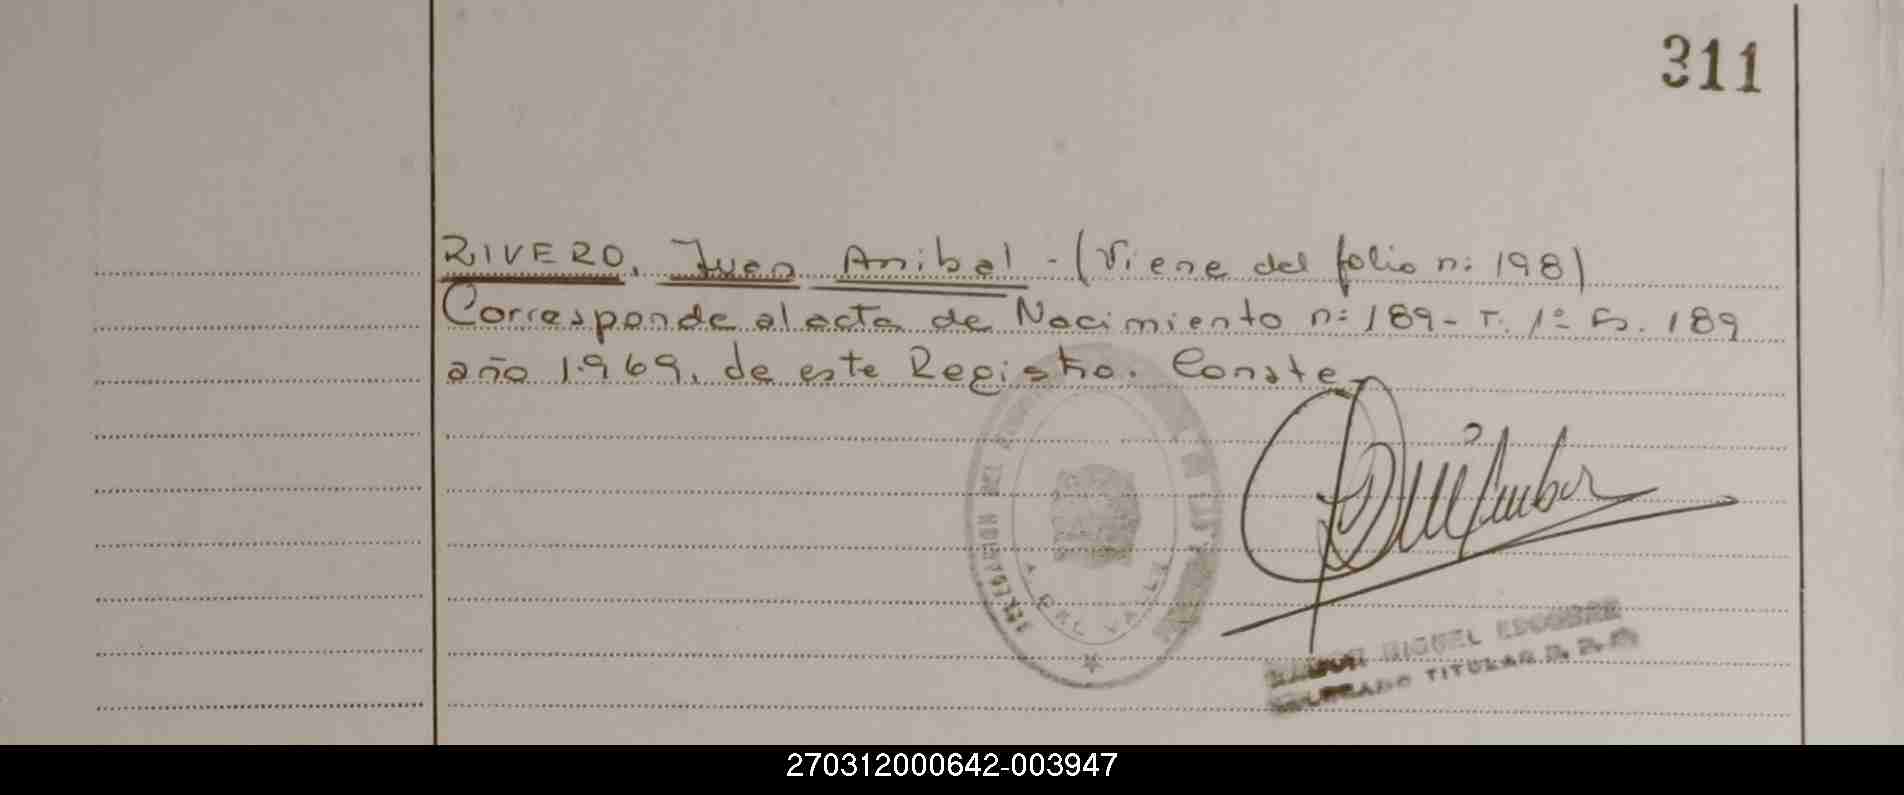 311
RIVERO, Juan Anibal - (Viene del folio n: 198)
Corresponde al acta de Nacimiento n: 189 - T. 1º Fs. 189
año 1.969, de este Registro. Conste
MIGUEL
TITULAR
270312000642-003947